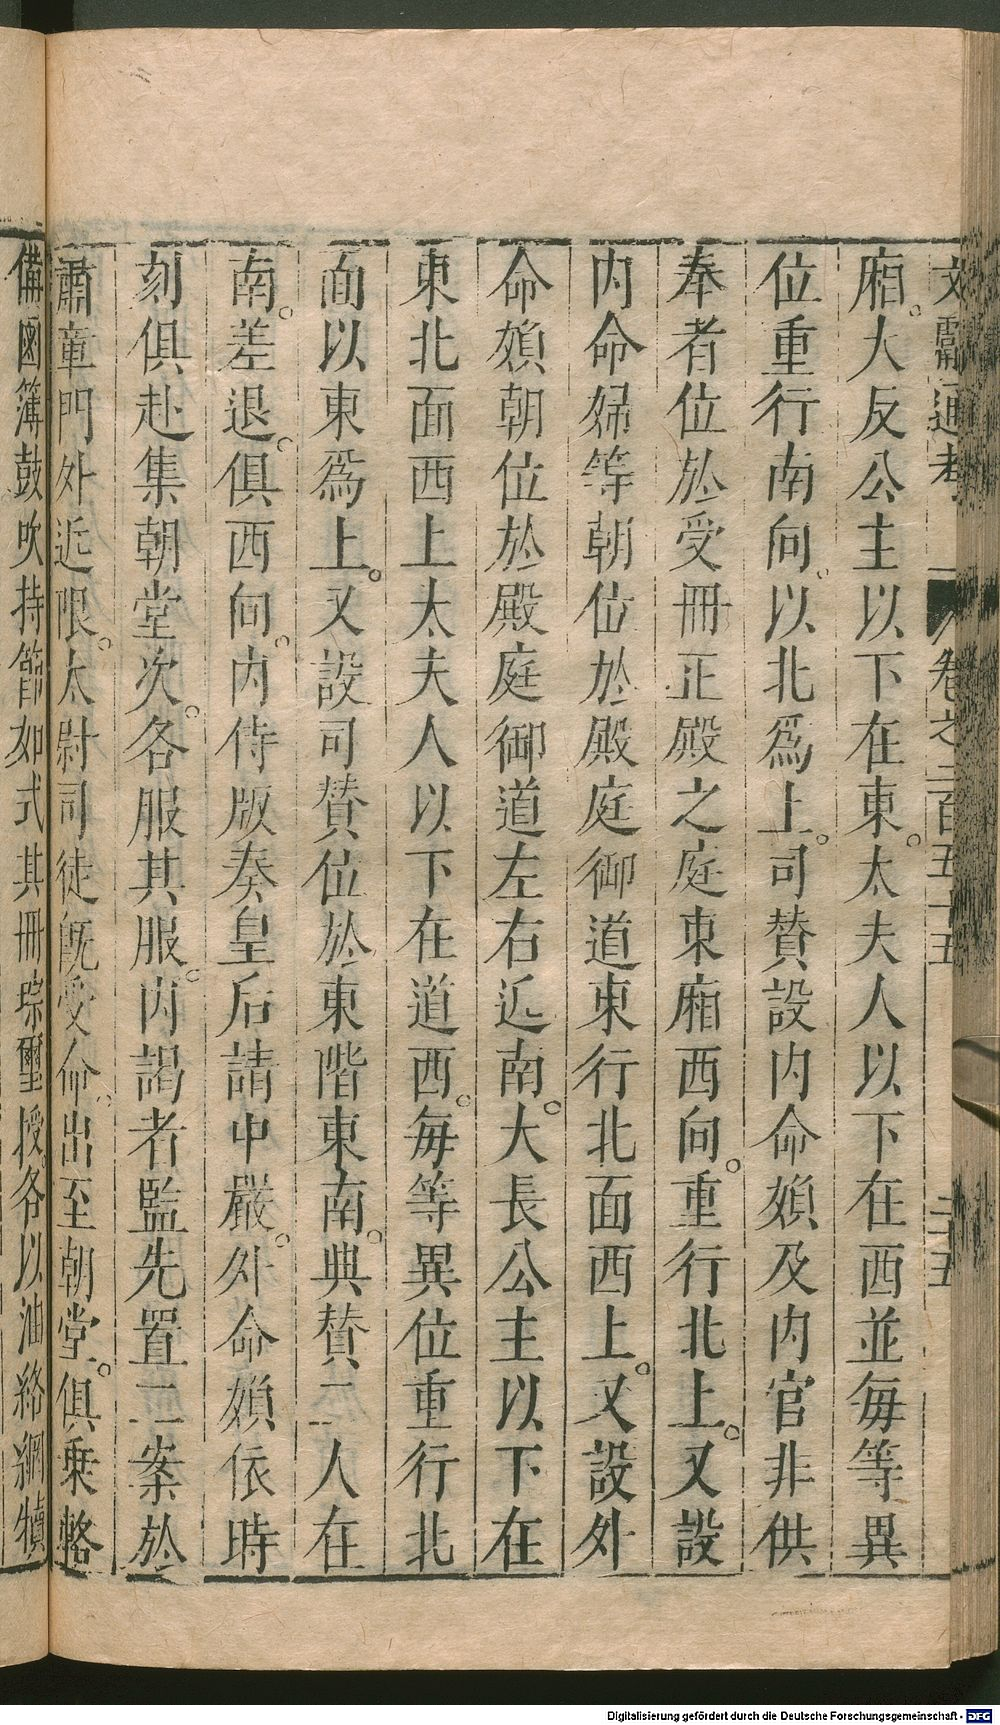 文獻通考 卷之二百五十五 二十五
廂。大反公主以下在東。太夫人以下在西並每等異
位重行南向。以北爲上。司贊設内命嬪及内官非供
奉者位於受冊正殿之庭東廂西向。重行北上。又設
内命婦等朝位於殿庭御道東行北面西上。又設外
命嬪朝位於殿庭御道左右近南。大長公主以下在
東北面西上太夫人以下在道西。每等異位重行北
面以東爲上。又設司贊位於東階東南。典贊二人在
南。差退。俱西向。内侍版奏皇后請中嚴。外命嬪依時
刻俱赴集朝堂次。各服其服。内謁者監先置二案於
肅章門外近限。太尉司徒旣受命。出至朝堂。俱乗輅
備鹵簿鼓吹持節如式其冊琮璽授。各以油絡網犢
Digitalisierung gefördert durch die Deutsche Forschungsgemeinschaft - DFG